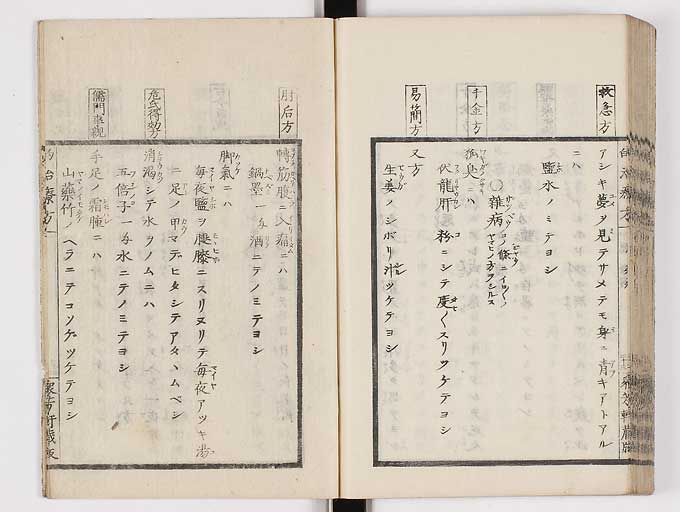 救急方
アシキ夢ヲ見テサメテモ身ニ青キアトアル
ニハ
鹽水ノミテヨシ
千金方
○雜病コノ條ニイツノ
ヤマヒノ方ヲシルス
狐臭ニハ
伏龍肝 粉ニシテ度〱スリツケテヨシ
易簡方
又方
生姜ノシボリ汁ツケテヨシ
肘后方
轉筋腹ニ入痛ニハ
鍋墨 一匁 酒ニテノミテヨシ
脚氣ニハ
毎夜鹽ヲ腰膝ニスリヌリテ毎夜アツキ湯
ニ足ノ甲マデヒタシテアタヽムベシ
危氏得効方
消渇シテ水ヲノムニハ
五倍子 一匁 水ニテノミテヨシ
儒門事親
手足ノ霜腫ニハ
山藥竹ノヘラニテコソゲツケテヨシ